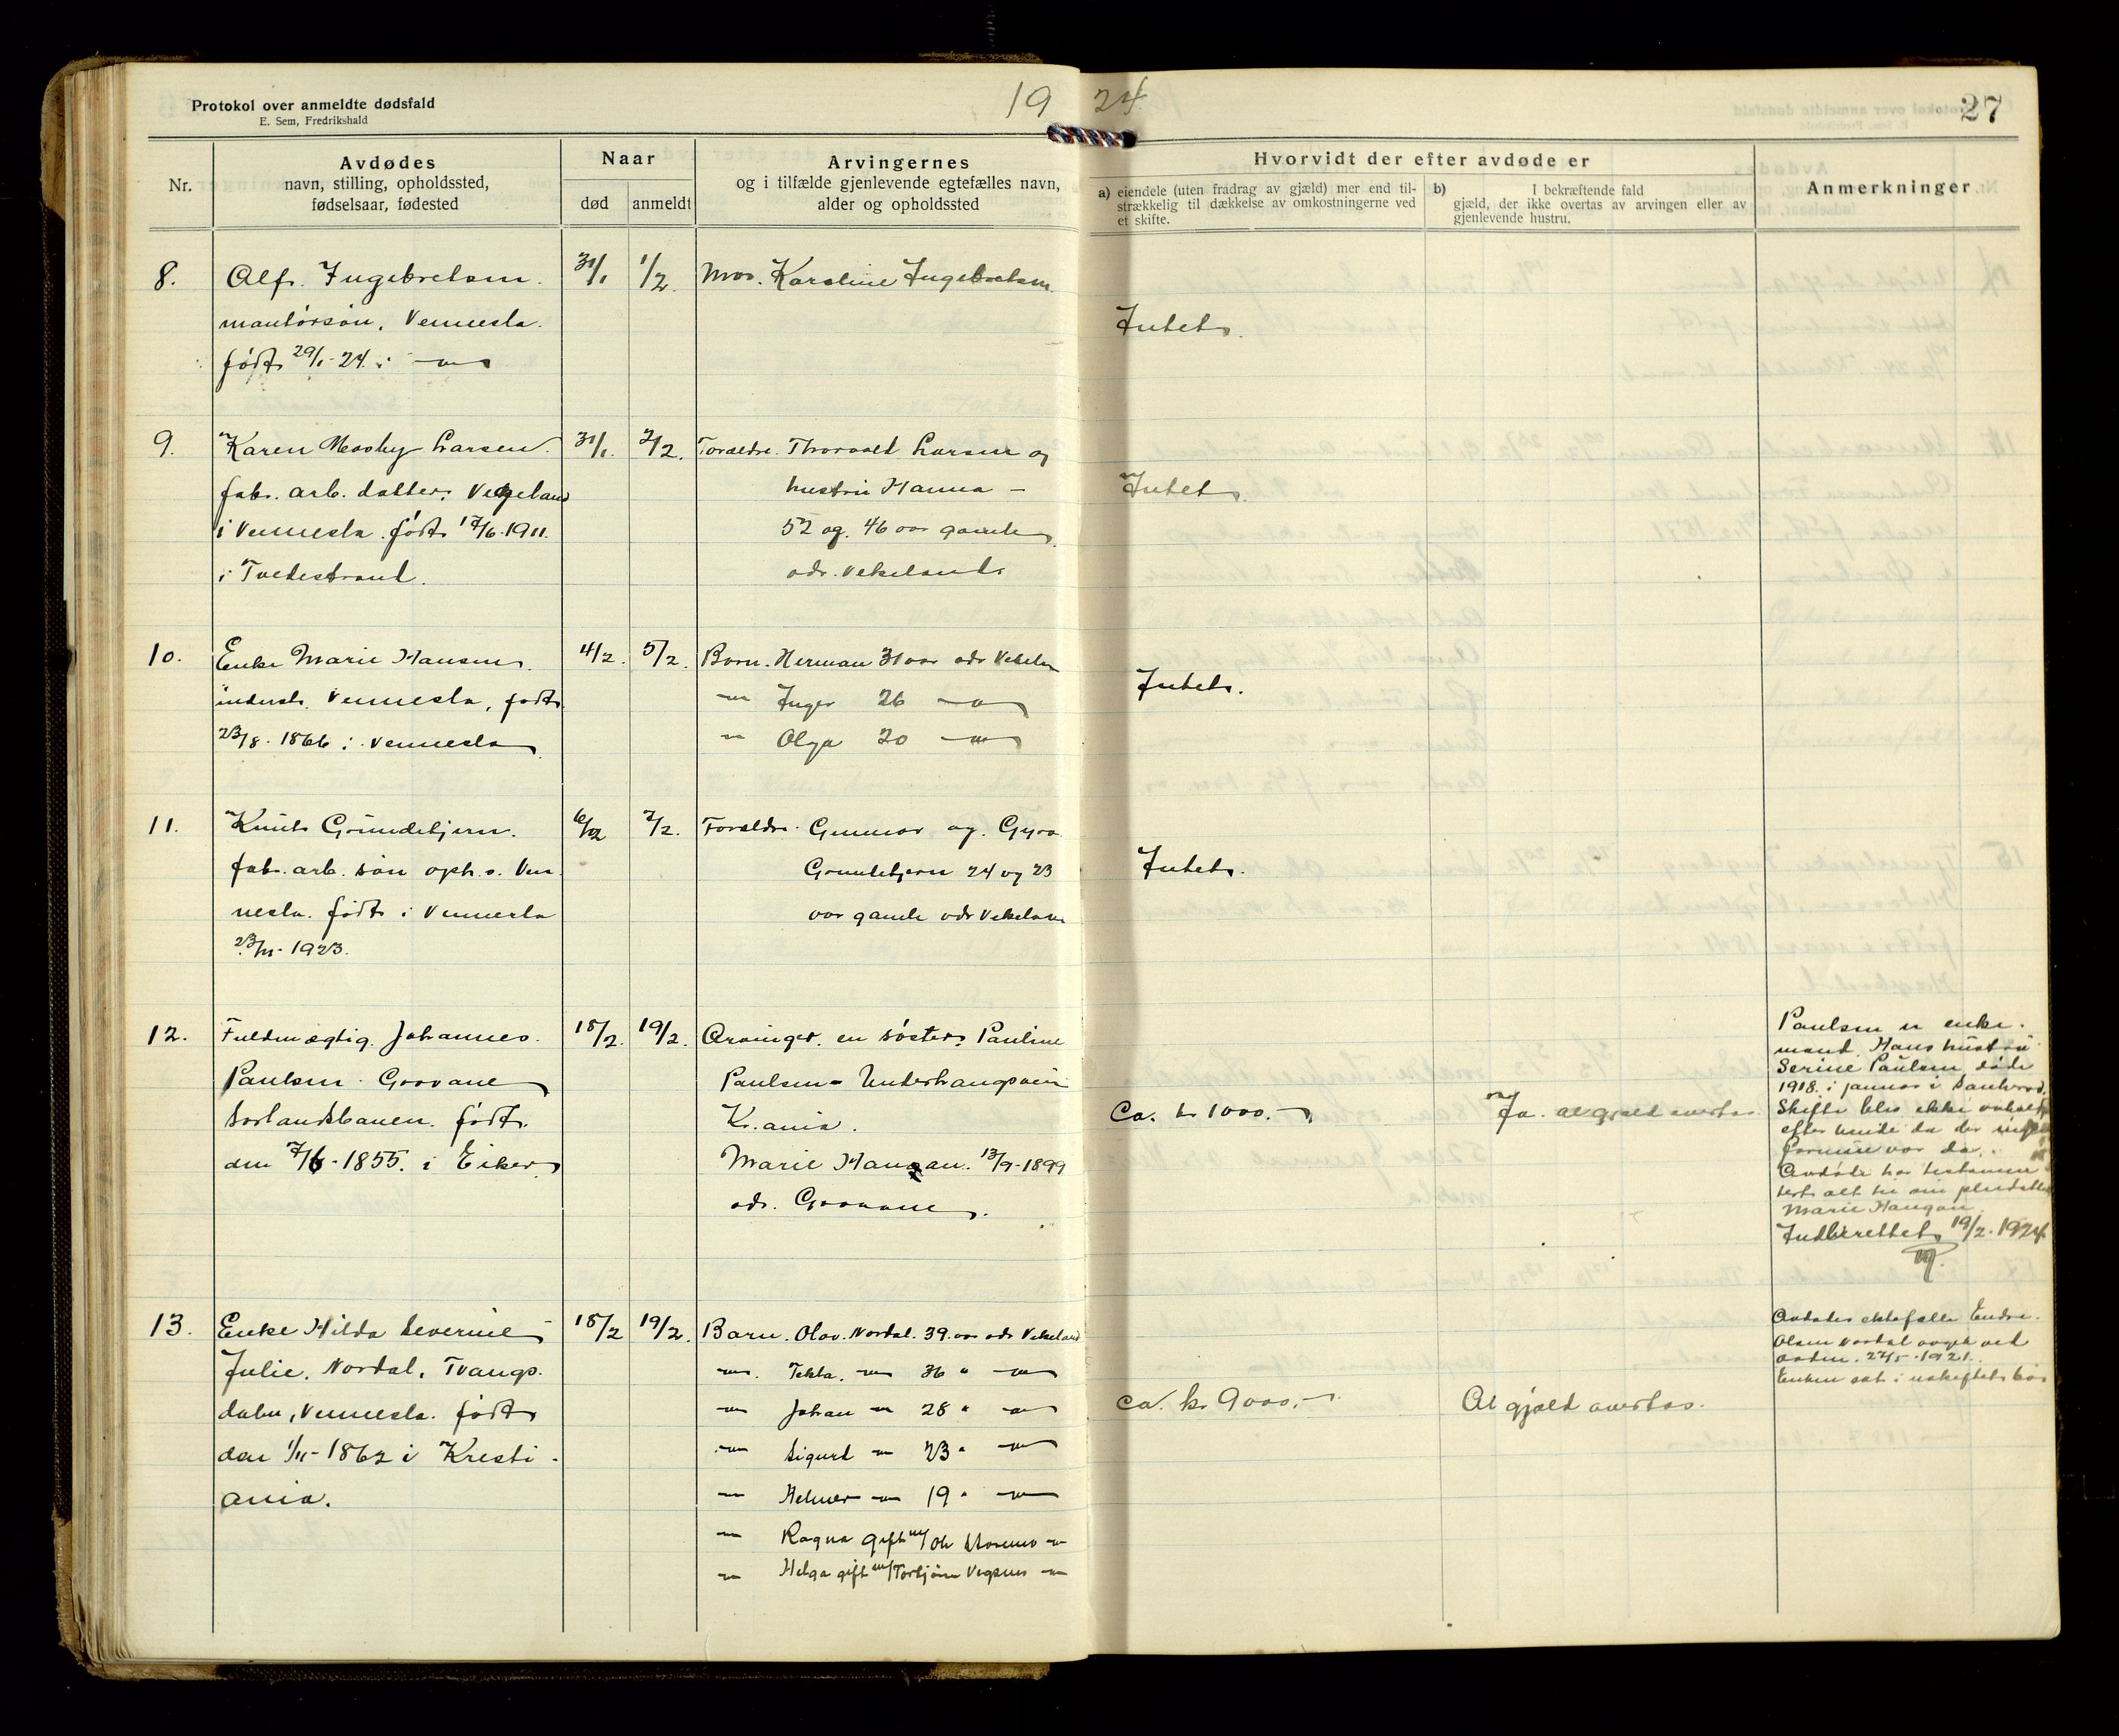 Protokol over anmeldte dødsfald
E. Sem, Fredrikshald
19 24
27
Nr.
Avdødes
navn, stilling, opholdssted,
fødselsaar, fødested
Naar
død
anmeldt
Arvingernes
og i tilfælde gjenlevende egtefælles navn,
alder og opholdssted
Hvorvidt der efter avdøde er
a) eiendele (uten fradrag av gjæld) mer end til-
strækkelig til dækkelse av omkostningerne ved
et skifte.
b) I bekræftende fald
gjæld, der ikke overtas av arvingen eller av
gjenlevende hustru.
Anmerkninger
8. Alf Ingebretsen 31/1 1/2 Mor. Karoline Ingebretsen
Vennesla. Intet.
født 29/1-24 i —"—
9. Karen Mosby Larsen 31/1 2/2. Forældre. Thorvald Larsen og
fab. arb. datter. Vegeland hustru Hanna — Intet.
i Vennesla. født 17/6-1911. 52 og 46 aar gamle
i Tvedestrand. adr. Vekeland.
10. Enke Marie Hansen. 4/2. 5/2. Barn. Herman 31 aar adr Vekeland
inderst. Vennesla, født —"— Inger 26 —"— Intet.
23/8-1866 i Vennesla —"— Olga 20 —"—
11. Knut Grundebjern. 6/2 7/2. Forældre. Gunnar og Gyro
fab. arb. søn oph. s. Ven Grundebjern 24 og 23 Intet.
nesla. født i Vennesla aar gamle adr Vekeland
23/11-1923.
12. Fuldmægtig Johannes 18/2. 19/2. Arvinger. en søster, Pauline
Paulsen. Grovane Paulsen
Sørlandsbanen. født K.ania. Ca. kr 1000.- Ja. al gjæld overtas
den 7/6-1855. i Eiker Marie Haugan. 13/9-1899
adr. Grovane.
Paulsen er enke-
mand. Hans hustru
Serine Paulsen døde
1918 i januar i
Skifte blev ikke avholdt
efter hende da der ingen
formue var da.
Avdøde har testamen
tert alt til sin pleiedatter
Marie Haugan
Indberettet 19/2-1924
13. Enke Hilda Severine 18/2 19/2. Barn. Olav Nordal. 39 aar adr Vekeland
Julie Nordal, Tvangs- —"— Tekla —"— 36 " —"—
dalen, Vennesla. født —"— Johan —"— 28 " —"— ca. kr 9000.- Al gjæld overtas.
den 1/11-1862 i Kristi- —"— Sigurd —"— 23 " —"—
ania. —"— Helmer —"— 19 " —"—
—"— Ragna gift m/ Ole —"—
—"— Helga gift m/ Torbjørn —"—
Avdødes ektefælle Endre
Olsen Nordal avgik ved
døden 27/5-1921.
Enken sat i uskiftet bo